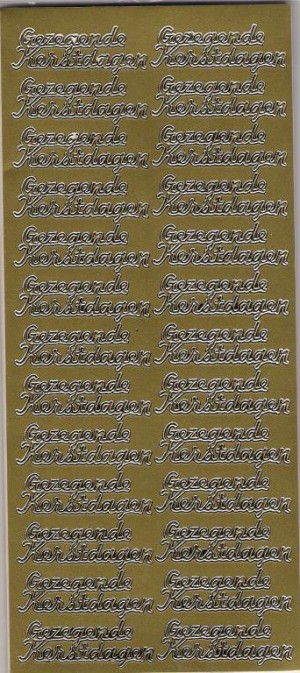 Gezegende Gezegende
Kerstdagen Kerstdagen
Gezegende Gezegende
Kerstdagen Kerstdagen
Gezegende Gezegende
Kerstdagen Kerstdagen
Gezegende Gezegende
Kerstdagen Kerstdagen
Gezegende Gezegende
Kerstdagen Kerstdagen
Gezegende Gezegende
Kerstdagen Kerstdagen
Gezegende Gezegende
Kerstdagen Kerstdagen
Gezegende Gezegende
Kerstdagen Kerstdagen
Gezegende Gezegende
Kerstdagen Kerstdagen
Gezegende Gezegende
Kerstdagen Kerstdagen
Gezegende Gezegende
Kerstdagen Kerstdagen
Gezegende Gezegende
Kerstdagen Kerstdagen
Gezegende Gezegende
Kerstdagen Kerstdagen